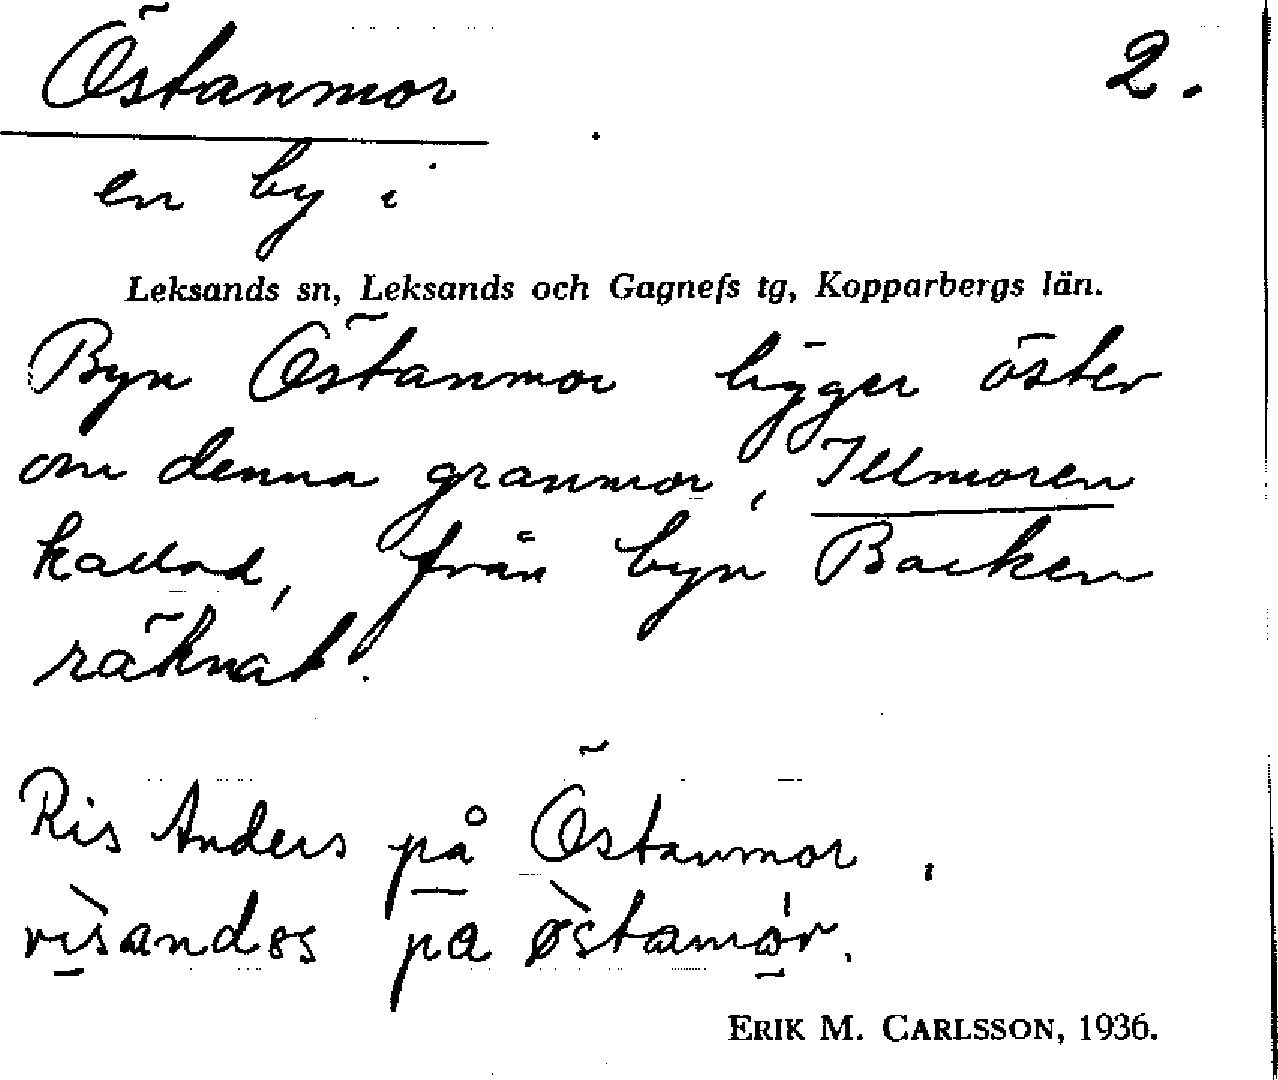 Östanmor 2.
en by i
Leksands sn, Leksands och Gagnefs tg, Kopparbergs län.
Byn Östanmor ligger öster
om denna granmor, Illmoren
kallad, från byn Backen
räknat.
Ris Anders på Östanmor,
rı̀sandəs pa ø̀stamór.
ERIK M. CARLSSON, 1936.